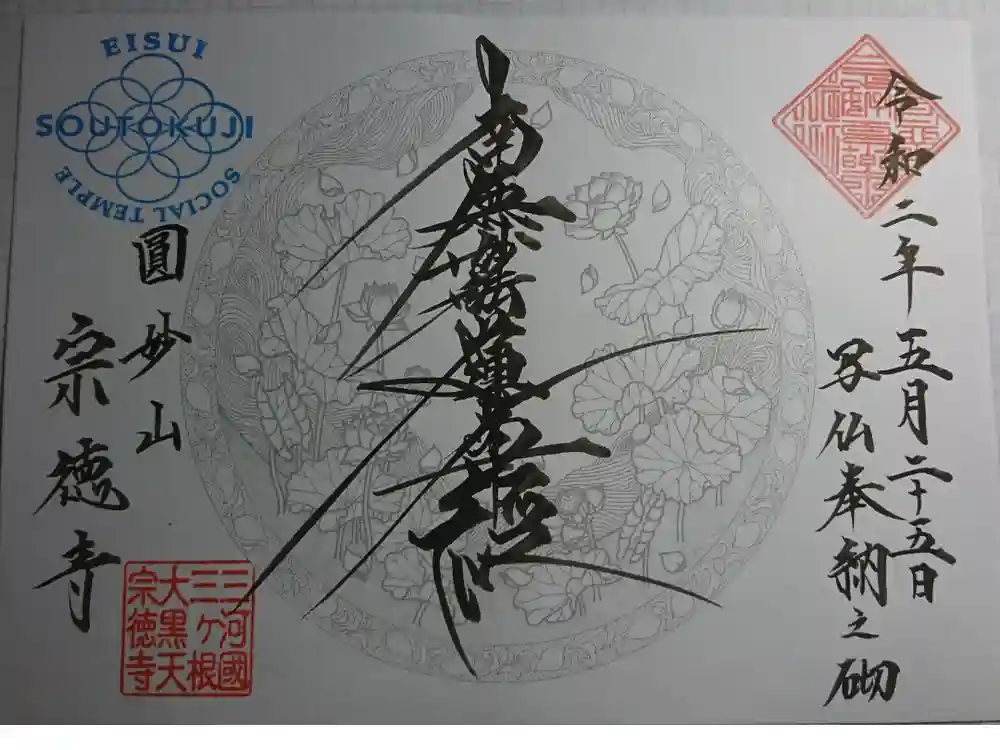 令和二年五月二十五日
写仏奉納之砌
南無妙法蓮華経
圓妙山
宗徳寺
EISUI
SOUTOKUJI
SOCIAL TEMPLE
三河國
三ヶ根
大黒天
宗徳寺